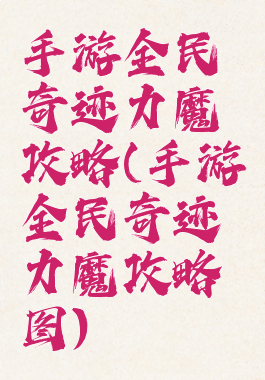 手游全民
奇迹力魔
攻略(手游
全民奇迹
力魔攻略
图)